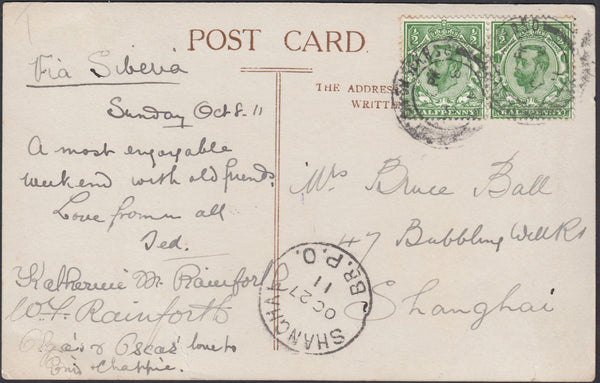 POST CARD.
Via Siberia
THE ADDRESS
WRITTE
Sunday Oct 8. 11
A most enjoyable
weekend with old friends.
Love from all
Ted.
Katherine M. Rainforth
W. F. Rainforth
& Oscar's love to
Chappie.
HALFPENNY
HALFPENNY
Mrs Bruce Ball
47 Bubbling Well Rd
Shanghai
SHANGHAI BR. P.O.
OC 27
11